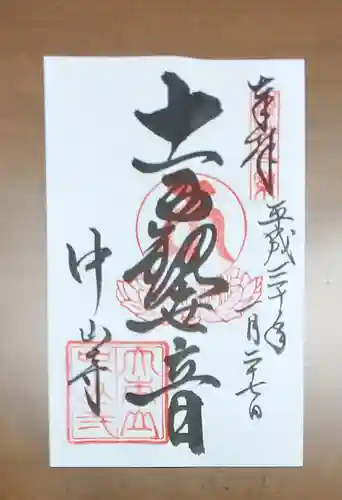 奉拝
平成三十年一月二十七日
十一面観世音
中山寺